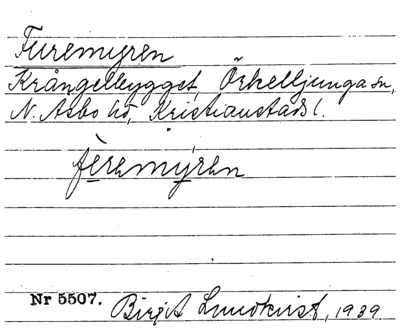 Furemyren
Krångelbygget, Örkelljunga sn,
N. Åsbo hd, Kristianstads l.
fèremýren
Nr 5507. Birgit Lundkvist, 1939